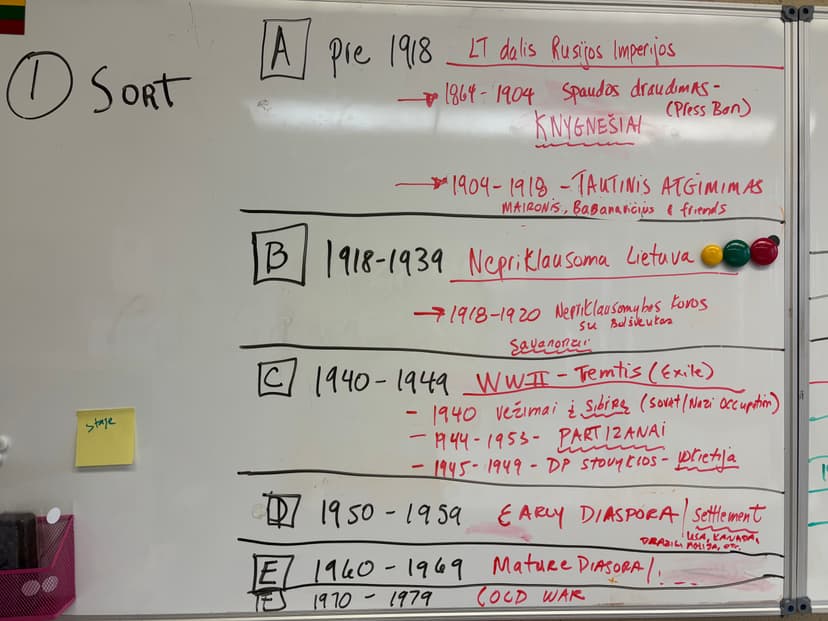 ① SORT
A pre 1918 LT dalis Rusijos Imperijos
1864-1904 Spaudos draudimas -
(Press Ban)
KNYGNEŠIAI
1904-1918 - TAUTINIS ATGIMIMAS
MAIRONIS, Babanavičius & friends
B 1918-1939 Nepriklausoma Lietuva
1918-1920 Nepriklausomybės kovos
su Bolševikas
savanoriai
C 1940-1949 WWII - Tremtis (Exile)
- 1940 vežimai į Sibirą (Soviet/Nazi Occupation)
- 1944-1953- PARTIZANAI
- 1945-1949 - DP stovyklos - Vokietija
stage
D 1950-1959 EARLY DIASPORA / settlement
USA, KANADA,
E 1960-1969 Mature DIASORA/
F 1970 - 1979 COLD WAR